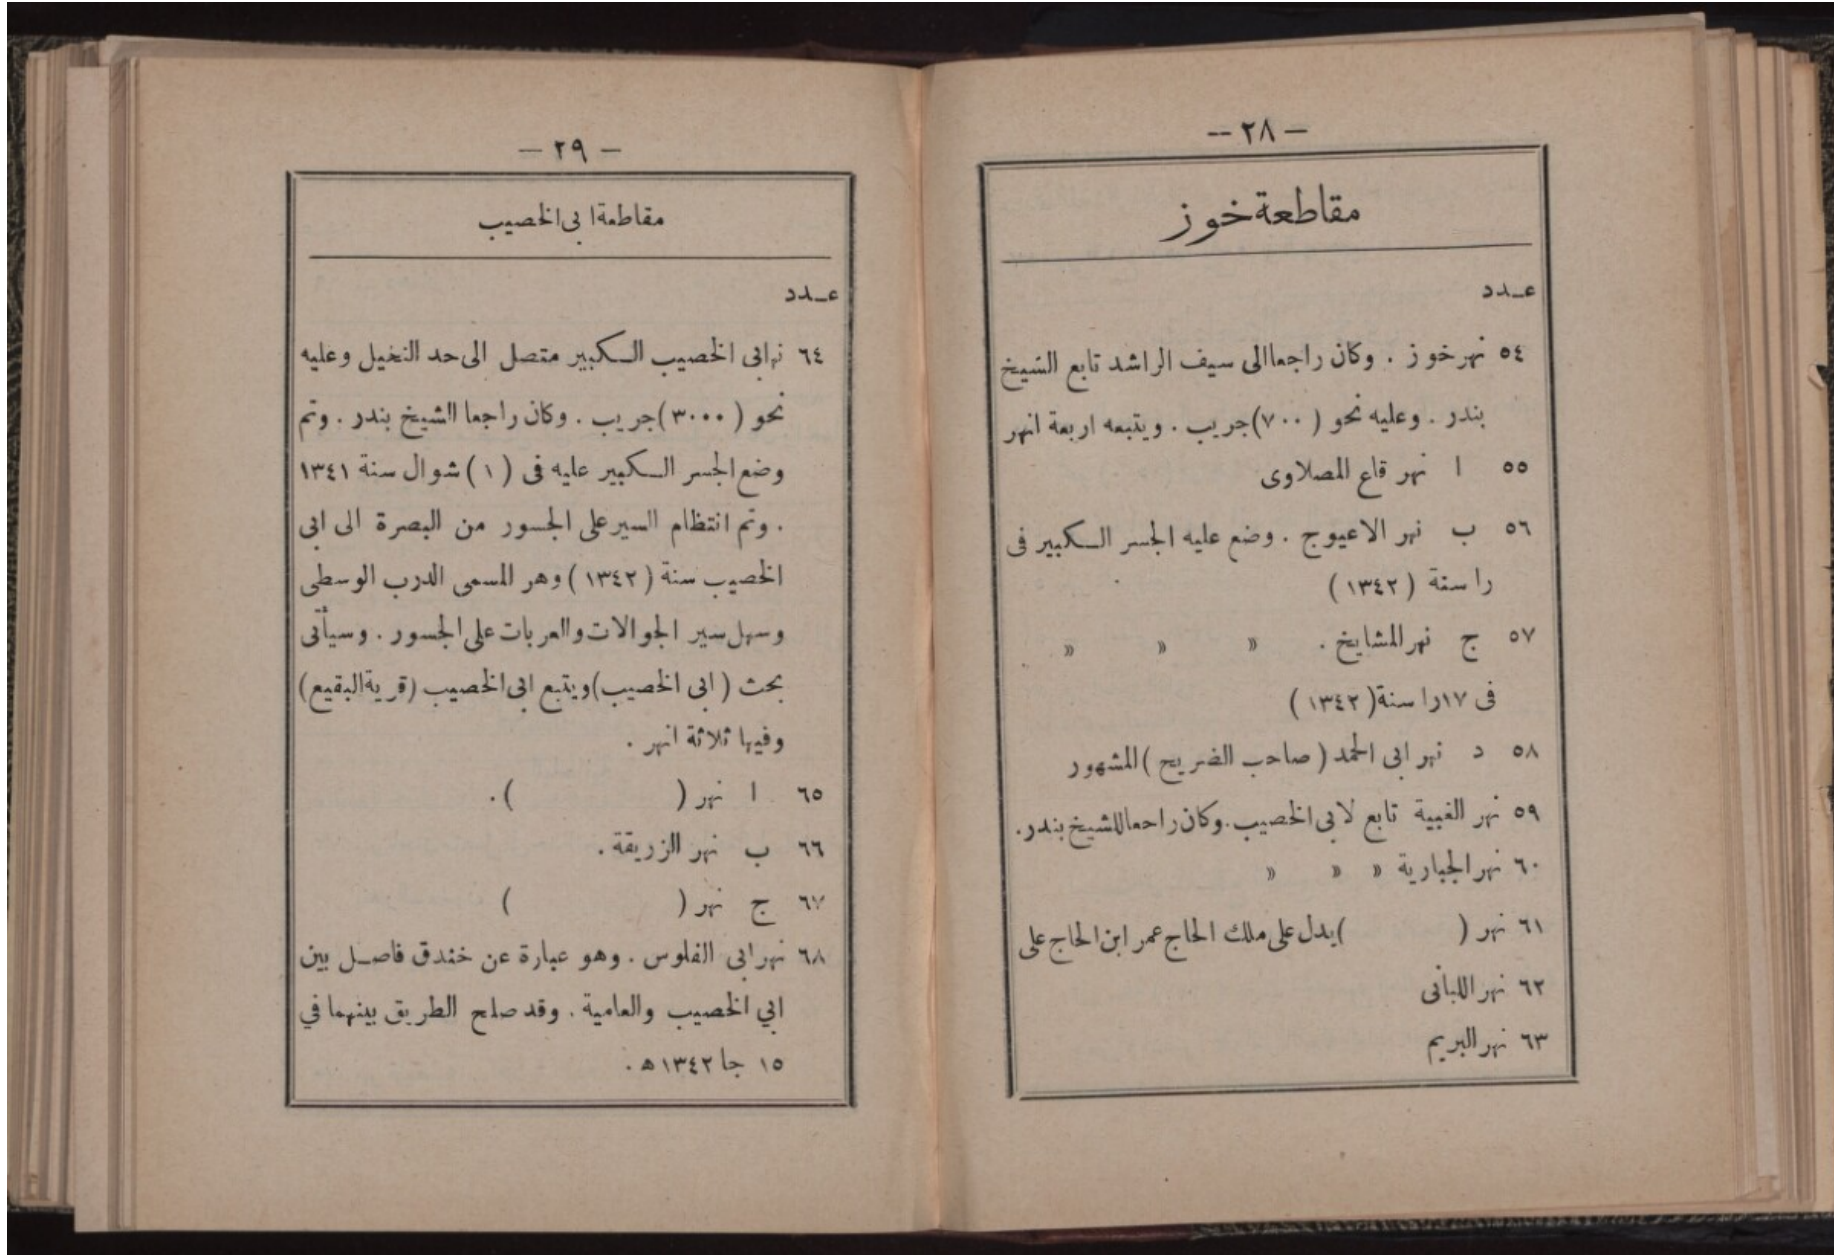 — ٢٨ —
مقاطعة خوز
عــدد
٥٤ نهر خوز . وكان راجعا الى سيف الراشد تابع الشيخ
بندر . وعليه نحو ( ٧٠٠ ) جريب . ويتبعه اربعة انهر
٥٥ ا نهر قاع المصلاوى
٥٦ ب نهر الاعيوج . وضع عليه الجسر الـكبير فى
را سنة ( ١٣٤٢ )
٥٧ ج نهر المشايخ . » » »
فى ١٧ را سنة ( ١٣٤٢ )
٥٨ د نهر ابى الحمد ( صاحب الضريح ) المشهور
٥٩ نهر الغبية تابع لابى الخصيب . وكان راحعا للشيخ بندر .
٦٠ نهر الجبارية » » »
٦١ نهر ( ) يدل على ملك الحاج عمر ابن الحاج على
٦٢ نهر اللبانى
٦٣ نهر البريم
— ٢٩ —
مقاطعة ابى الخصيب
عــدد
٦٤ نهرابى الخصيب الـكبير متصل الى حد النخيل وعليه
نحو ( ٣٠٠٠ ) جريب . وكان راجعا الشيخ بندر . وتم
وضع الجسر الـكبير عليه فى ( ١ ) شوال سنة ١٣٤١
. وتم انتظام السير على الجسور من البصرة الى ابى
الخصيب سنة ( ١٣٤٢ ) وهر المسمى الدرب الوسطى
وسهل سير الجوالات والعربات على الجسور . وسيأتى
بحث ( ابى الخصيب ) ويتبع ابى الخصيب ( قرية البقيع )
وفيها ثلاثة انهر .
٦٥ ا نهر ( ) .
٦٦ ب نهر الزريقة .
٦٧ ج نهر ( )
٦٨ نهر ابى الفلوس . وهو عبارة عن خندق فاصـل بين
ابي الخصيب والعامية . وقد صلح الطريق بينهما في
١٥ جا ١٣٤٢ ه .